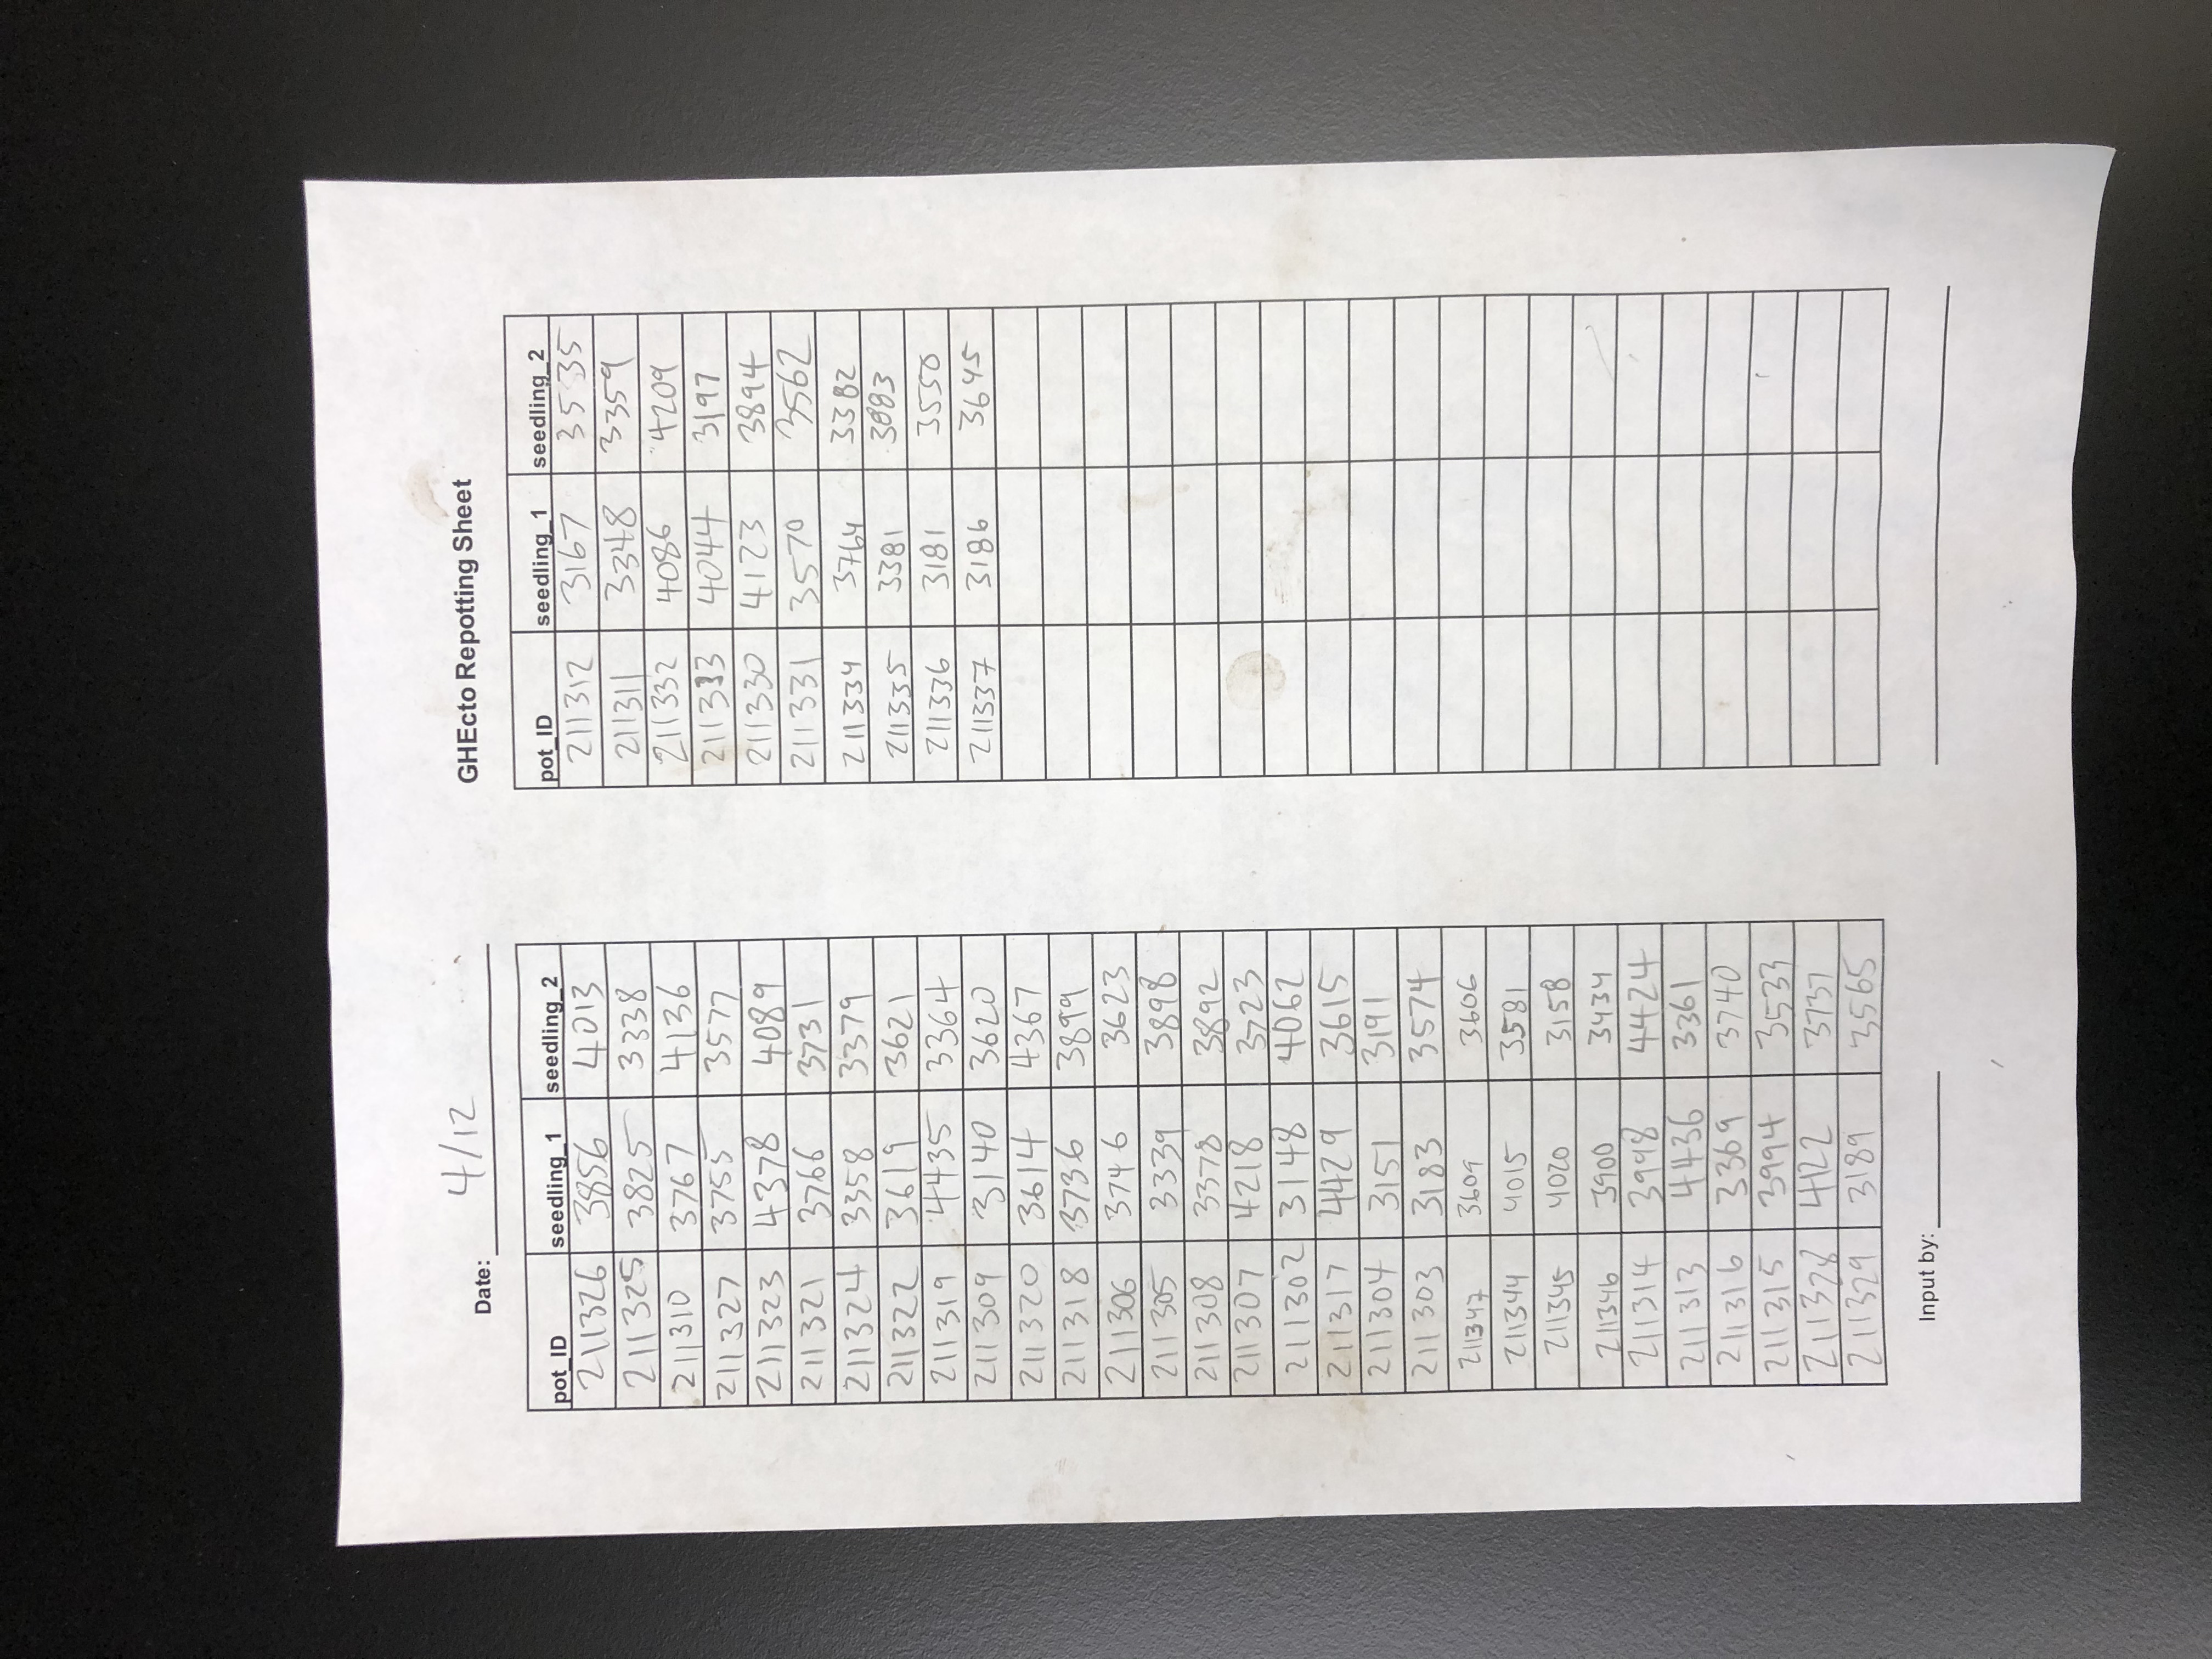 Date: 4/12
GHEcto Repotting Sheet
pot_ID seedling_1 seedling_2
211326 3856 4013
211325 3825 3338
211310 3767 4136
211327 3755 3577
211323 4378 4089
211321 3766 3731
211324 3358 3379
211322 3619 3621
211319 4435 3364
211309 3140 3620
211320 3614 4367
211318 3736 3899
211306 3746 3623
211305 3339 3898
211308 3378 3892
211307 4218 3723
211302 3148 4062
211317 4429 3615
211304 3151 3191
211303 3183 3574
211347 3609 3606
211344 4015 3581
211345 4020 3158
211346 3900 3434
211314 3998 4424
211313 4436 3361
211316 3369 3740
211315 3994 3533
211328 4122 3737
211329 3189 3565
Input by:
pot_ID seedling_1 seedling_2
211312 3167 3535
211311 3348 3359
211332 4086 4209
211333 4044 3197
211330 4123 3894
211331 3570 3562
211334 3764 3382
211335 3381 3883
211336 3181 3550
211337 3186 3645